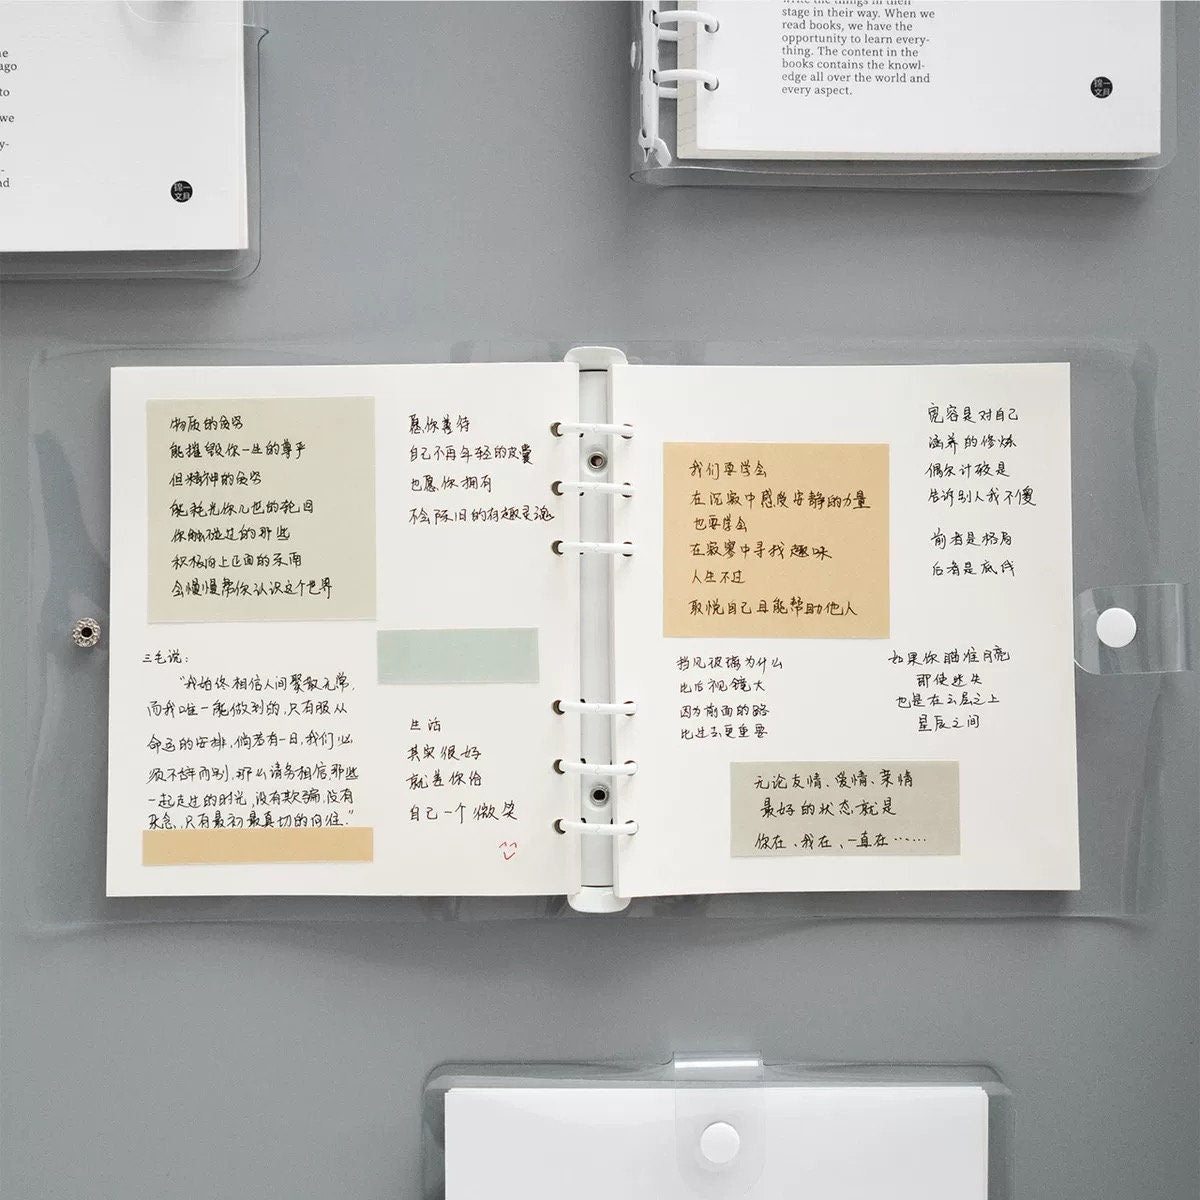 ago
to
we
y-
nd
琼一
文具
write the things in their
stage in their way. When we
read books, we have the
opportunity to learn every-
thing. The content in the
books contains the knowl-
edge all over the world and
every aspect.
琼一
文具
物质的贫穷
能摧毁你一生的尊严
但精神的贫穷
能耗光你几世的轮回
你触碰过的那些
积极向上正面的东西
会慢慢帮你认识这个世界
三毛说:
"我始终相信人间聚散无常,
而我唯一能做到的,只有服从
命运的安排,倘若有一日,我们必
须不辞而别,那么请务相信那些
一起走过的时光,没有欺骗,没有
杂念,只有最初最真切的向往."
愿你善待
自己不再年轻的皮囊
也愿你拥有
不会陈旧的有趣灵魂
生活
其实很好
就差你给
自己一个微笑
我们要学会
在沉寂中感受安静的力量
也要学会
在寂寥中寻找趣味
人生不过
取悦自己且能帮助他人
宽容是对自己
涵养的修炼
偶尔计较是
告诉别人我不傻
前者是格局
后者是底线
挡风玻璃为什么
比后视镜大
因为前面的路
比过去更重要
如果你瞄准月亮
即使迷失
也是在云层之上
星辰之间
无论友情、爱情、亲情
最好的状态就是
你在、我在、一直在……